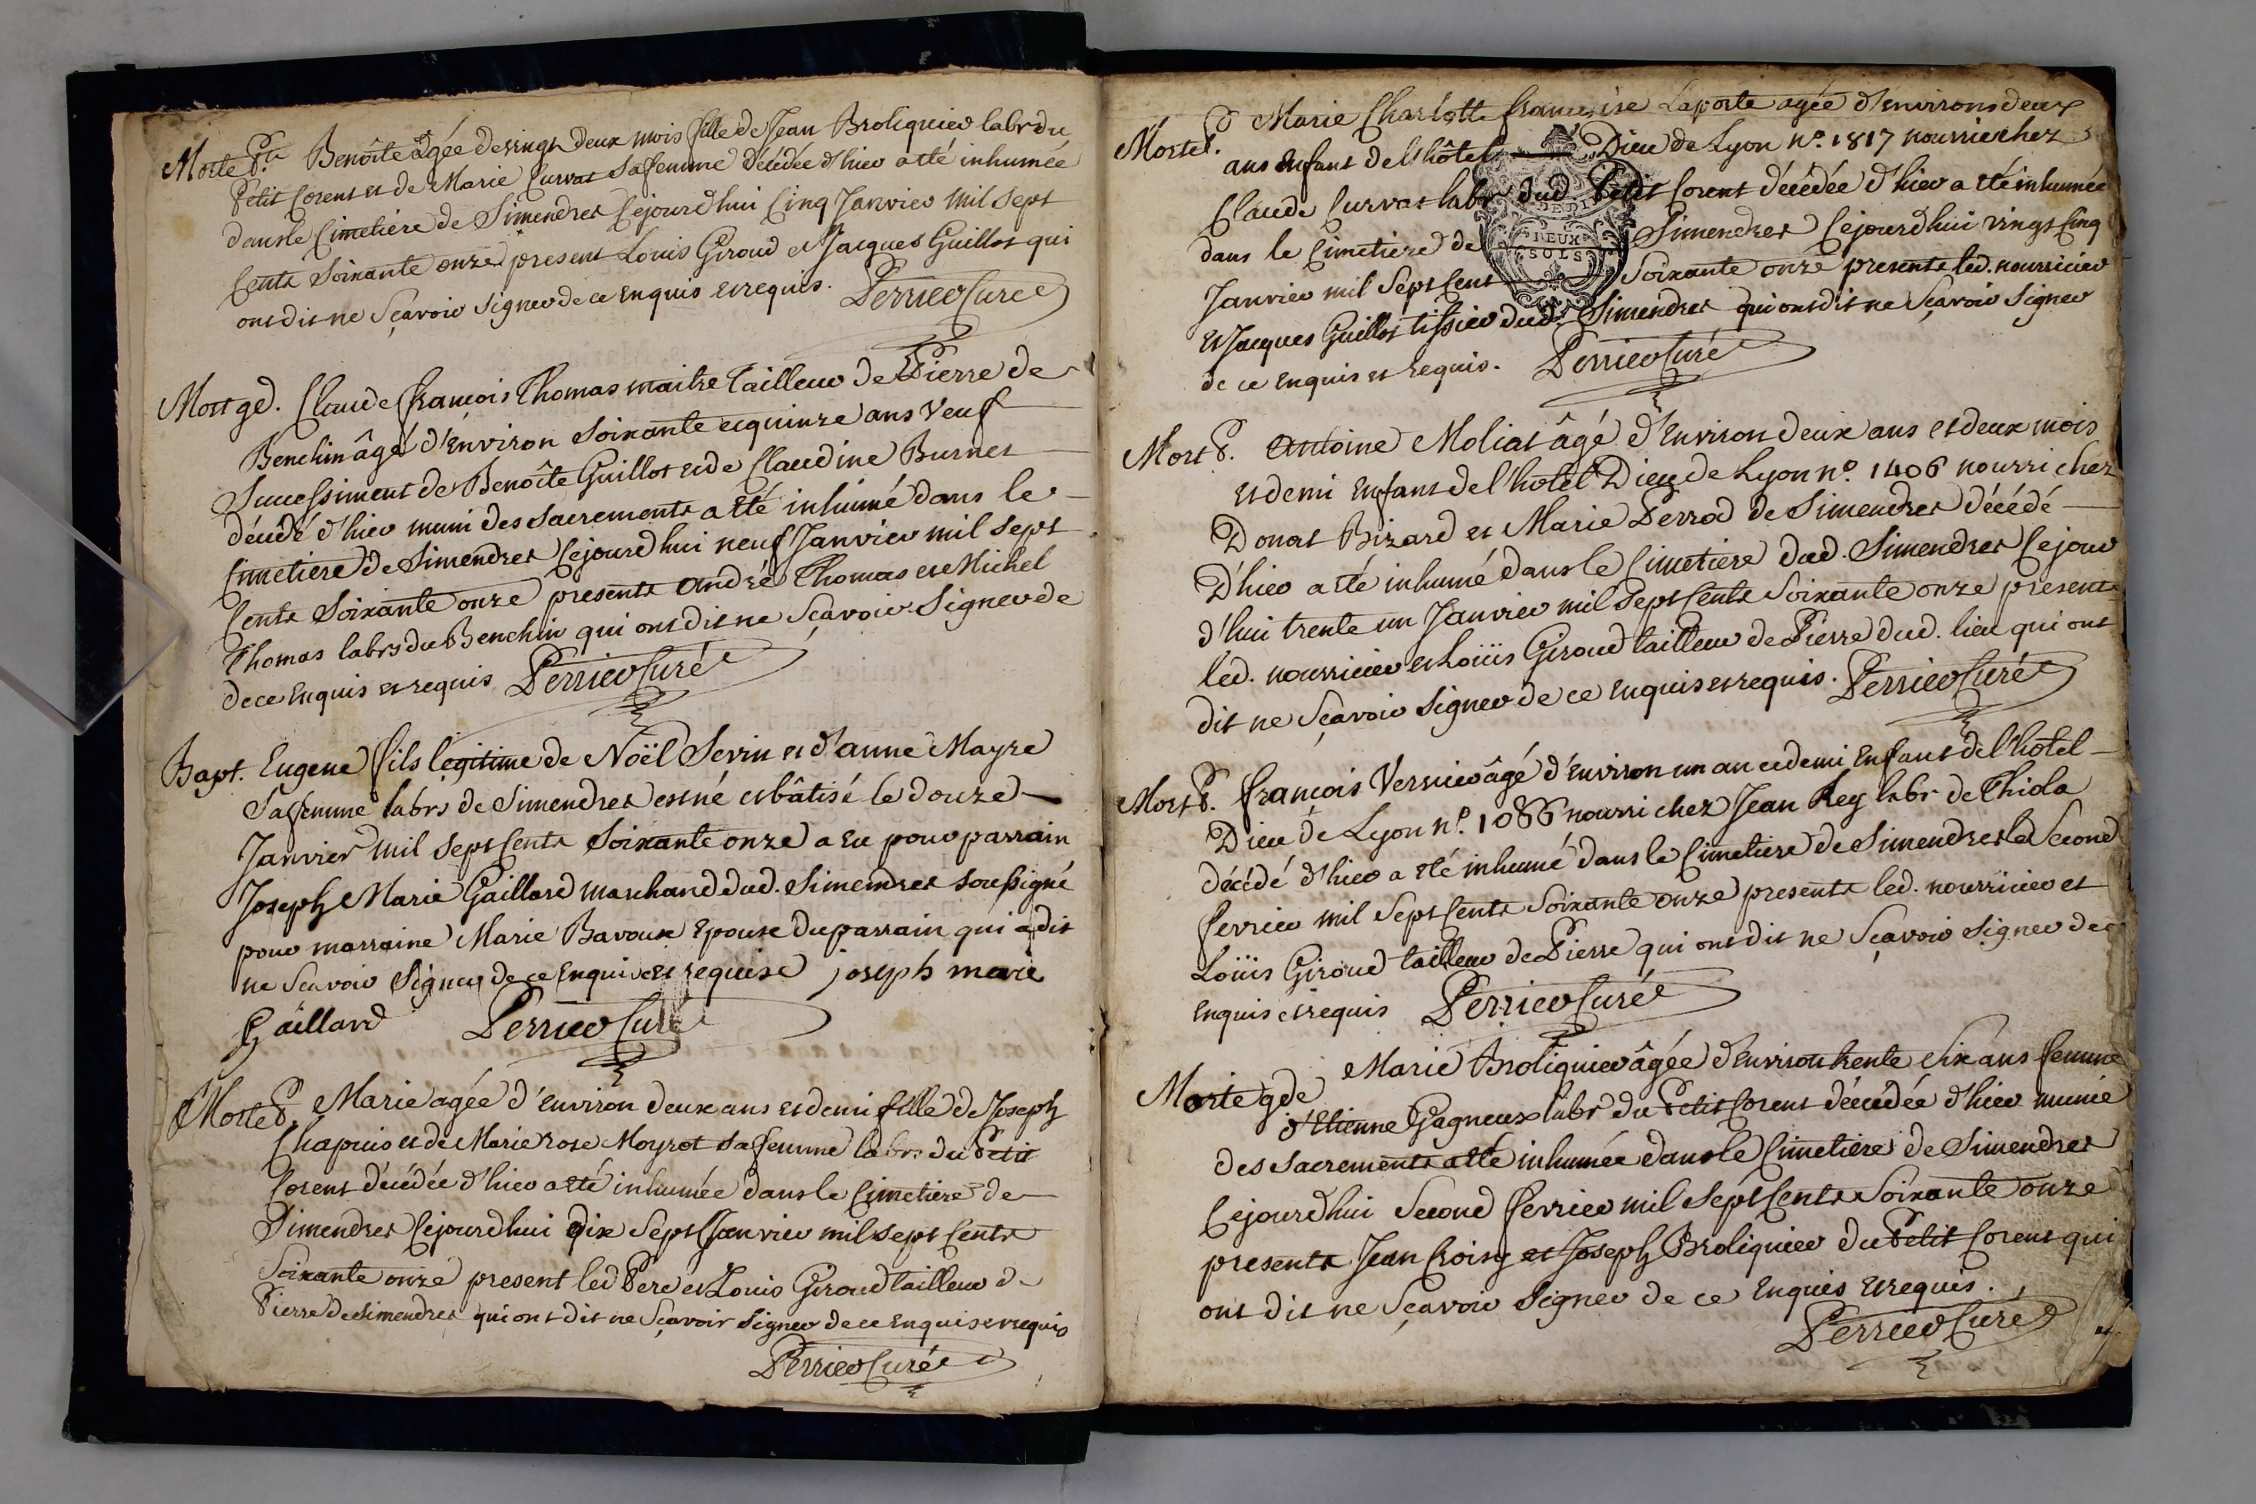 Morte P.te Benôite agée de vingt deux mois fille de Jean Broliquier labr du
Petit Corent et de Marie Curvat sa femme décédée d'hier a eté inhumée
dans le Cimetiere de Simendres Cejourdhui Cinq Janvier mil Sept
Cents Soixante onze present Louis Giroud et Jacques Guillot qui
ont dit ne Sçavoir signer de ce Enquis et requis. Perrier Curé
Mort gd. Claude françois Thomas maitre Tailleur de Pierre de
Benchin âgé d'Environ Soixante et quinze ans Veuf
Successiment de Benôite Guillot et de Claudine Burnet
décédé d'hier muni des Sacrements a eté inhumé dans le
Cimetiere de Simendres Cejourdhui neuf Janvier mil Sept
Cents Soixante onze presents andré Thomas et Michel
Thomas labrs du Benchin qui ont dit ne Sçavoir Signer de
de ce Enquis et requis Perrier Curé
Bapt. Eugene fils légitime de Noël Sevin et d'anne Mayre
Sa femme labrs de Simendres est né et bâtisé le douze
Janvier mil Sept Cents Soixante onze a Eu pour parrain
Joseph Marie Gaillard marchand dud. Simendres Soussigné
pour marraine Marie Bavoux Epouse du parrain qui a dit
ne Scavoir Signer de ce Enquise et requise joseph marie
Gaillard Perrier Curé
Morte P. Marie agée d'Environ deux ans et demi fille de Joseph
Chapuis et de Marie rose Moyrot sa femme labrs du Petit
Corent décédée d'hier a eté inhumée dans le Cimetiere de
Simendres Cejourdhui dix Sept Janvier mil Sept Cents
Soixante onze present led Pere et Louis Giroud tailleur de
Pierre de Simendres qui ont dit ne Sçavoir Signer de ce Enquis et requis
Perrier Curé
Morte P. Marie Charlotte françoise Laporte agée d'Environ deux
ans Enfant de l'hôtel Dieu de Lyon n.º 1817 nourrie chez
Claude Curvat labr dud Petit Corent décédée d'hier a eté inhumée
dans le Cimetiere de Simendres Cejourdhui vingt Cinq
DEUX
SOLS
Janvier mil Sept Cent Soixante onze presents led. nourricier
et Jacques Guillot tissier dud. Simendres qui ont dit ne Sçavoir Signer
de ce Enquis et requis. Perrier Curé
Mort P. Antoine Moliat âgé d'Environ deux ans et deux mois
et demi Enfant de l'hotel Dieu de Lyon n.º 1406 nourri chez
Donat Bizard et Marie Perrod de Simendres décédé
D'hier a eté inhumé dans le Cimetiere dud. Simendres Cejour
d'hui trente un Janvier mil Sept Cents Soixante onze presents
led. nourricier et Loüis Giroud tailleur de Pierre dud. lieu qui ont
dit ne Sçavoir Signer de ce Enquis et requis. Perrier Curé
Mort P. françois Vernier âgé d'Environ un an et demi Enfant de l'hôtel
Dieu de Lyon n.º 1086 nourri chez Jean Rey labr de Thiola
décédé d'hier a eté inhumé dans le Cimetiere de Simendres le Second
fevrier mil Sept Cents Soixante onze presents led. nourricier et
Loüis Giroud tailleur de Pierre qui ont dit ne Sçavoir Signer de ce
Enquis et requis Perrier Curé
Morte gde Marie Broliquier âgée d'Environ trente Six ans femme
d'Etienne Gagneux labr du Petit Corent décédée d'hier munie
des Sacrements a eté inhumée dans le Cimetiere de Simendres
Cejourdhui Second fevrier mil Sept Cents Soixante onze
presents Jean Croisy et Joseph Broliquier du Petit Corent qui
ont dit ne Sçavoir Signer de ce Enquis et requis.
Perrier Curé